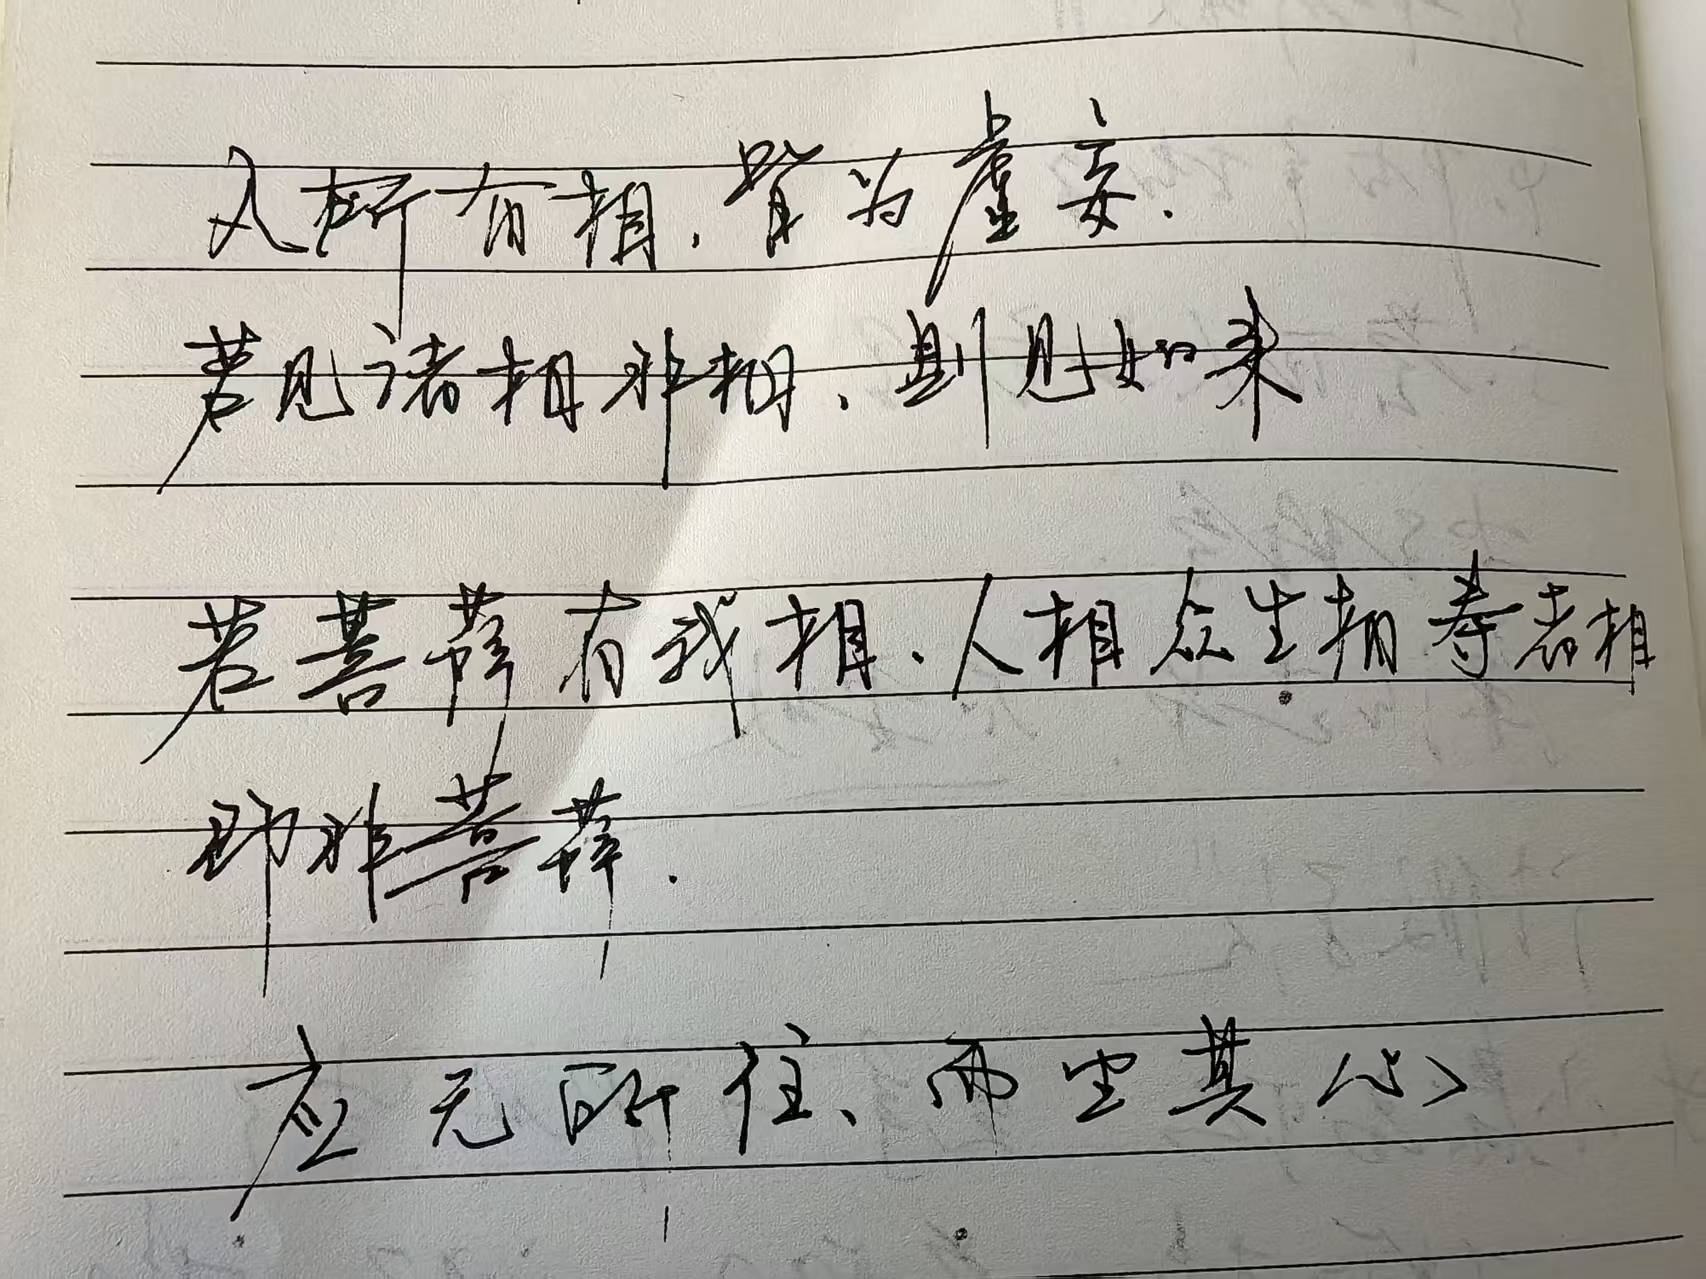 凡所有相，皆为虚妄．
若见诸相非相、则见如来
若菩萨有我相、人相众生相寿者相
即非菩萨．
应无所住、而生其心